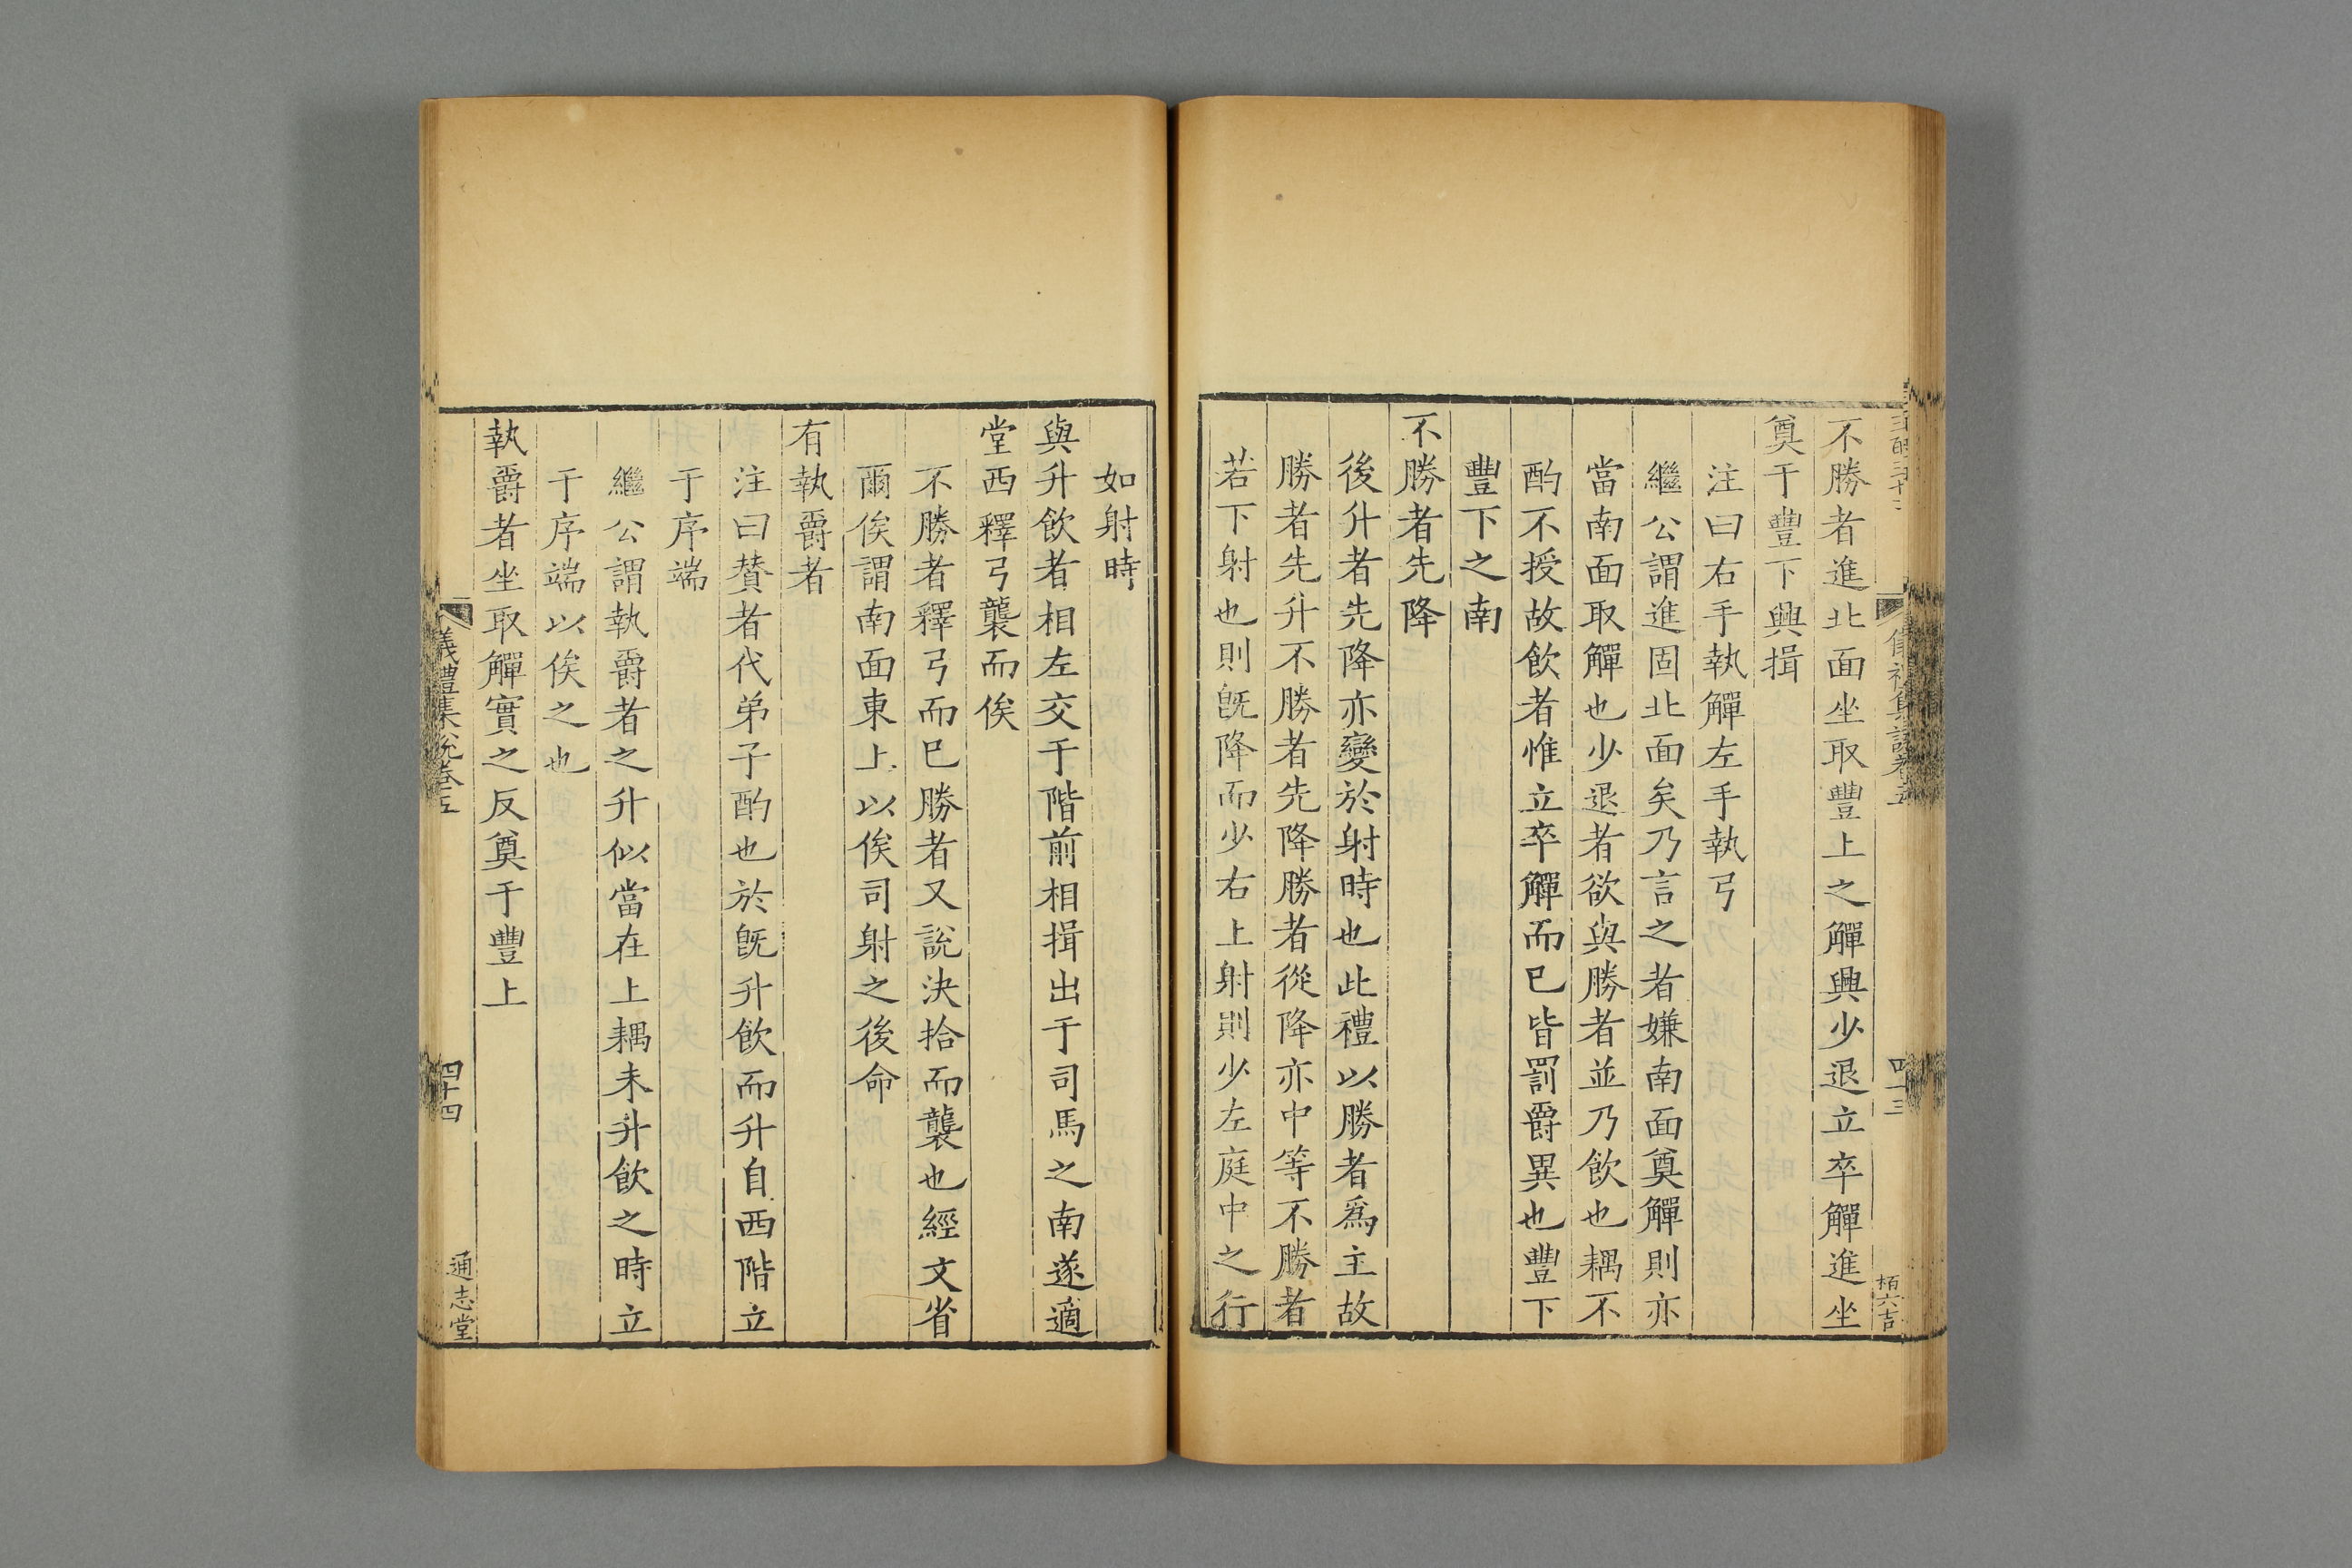 不勝者進北面坐取豐上之觶興少退立卒觶進坐
奠于豐下興揖
注曰右手執觶左手執弓
繼公謂進固北面矣乃言之者嫌南面奠觶則亦
當南面取觶也少退者欲與勝者並乃飲也耦不
酌不授故飲者惟立卒觶而已皆罰爵異也豐下
豐下之南
不勝者先降
後升者先降亦變於射時也此禮以勝者為主故
勝者先升不勝者先降勝者從降亦中等不勝者
若下射也則旣降而少右上射則少左庭中之行
如射時
與升飲者相左交于階前相揖出于司馬之南遂適
堂西釋弓襲而俟
不勝者釋弓而已勝者又說決拾而襲也經文省
爾俟謂南面東上以俟司射之後命
有執爵者
注曰贊者代弟子酌也於旣升飲而升自西階立
于序端
繼公謂執爵者之升似當在上耦未升飲之時立
于序端以俟之也
執爵者坐取觶實之反奠于豐上
儀禮集說卷五
四十四
通志堂